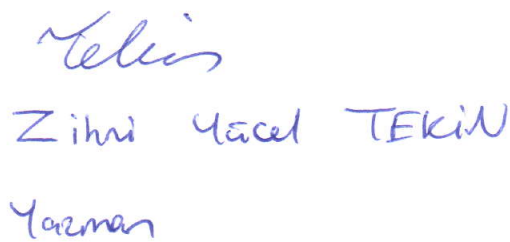 Tekin
Zihni Yücel TEKİN
Yazman